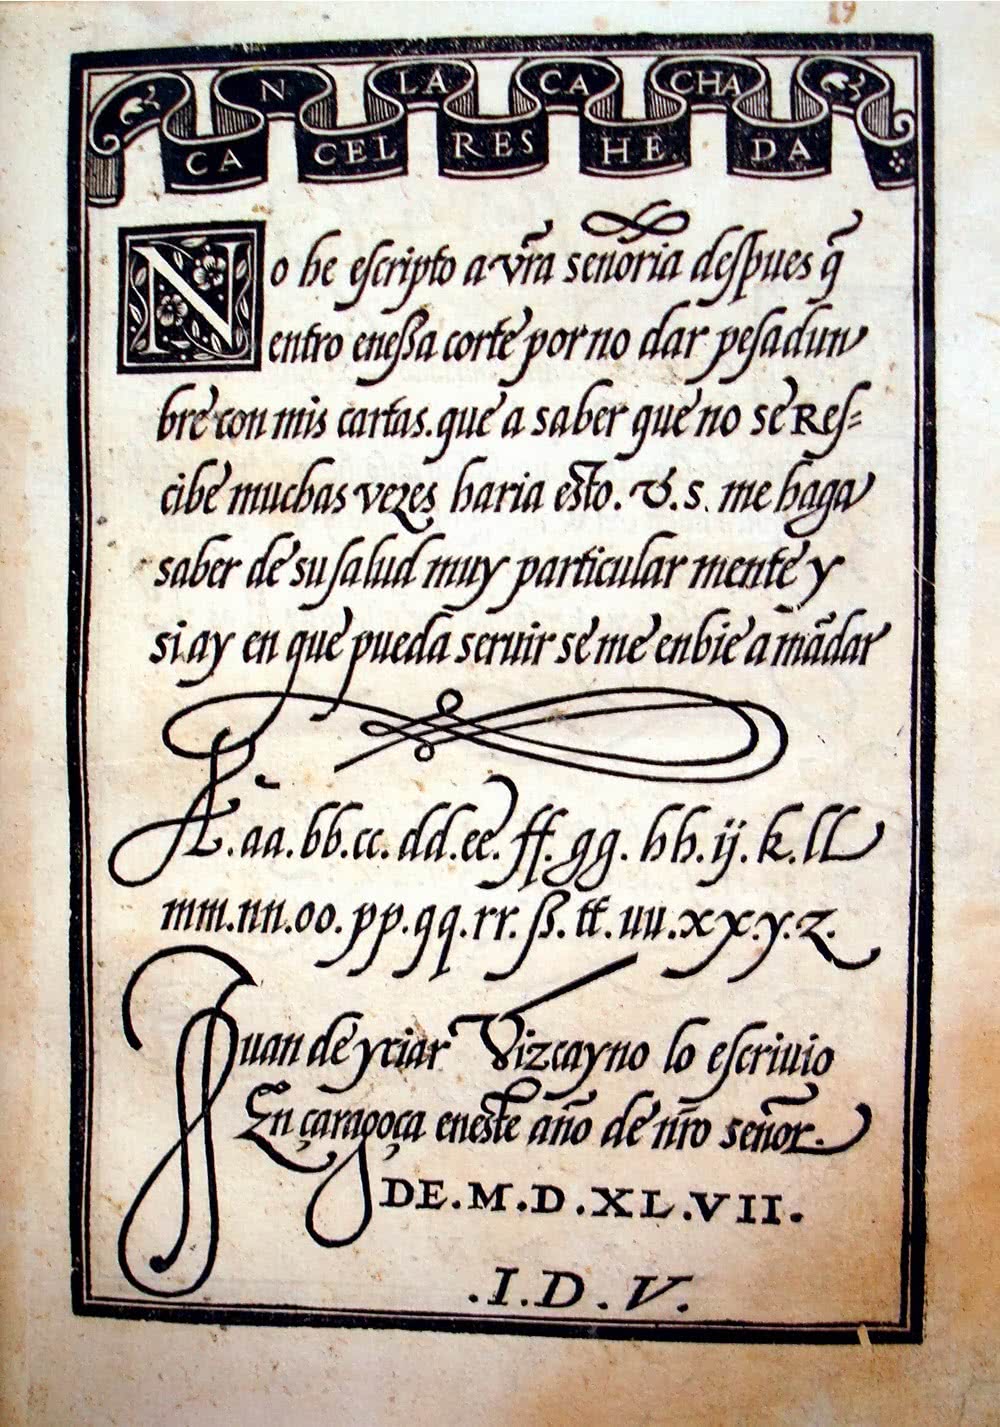 19
CA N CEL LA RES CA HE. CHA DA
No he eſcripto a vr̃a señoria deſpues q̃
entro eneßa corte por no dar peſadun
bre con mis cartas. que a saber que no se Reſ-
cibe muchas vezes haria esto. V. s. me haga
saber de su ſalud muy particular mente y
si ay en que pueda seruir se me enbie a mãdar
A. aa. bb. cc. dd. ee. ff. gg. hh. ij. k. ll
mm. nn. oo. pp. qq. rr. ß. tt. uu. xx. y. z.
Juan de yciar Vizcayno lo eſcriuio
En çaragoça eneste año de nr̃o señor.
DE. M. D. XL. VII.
.I. D. V.